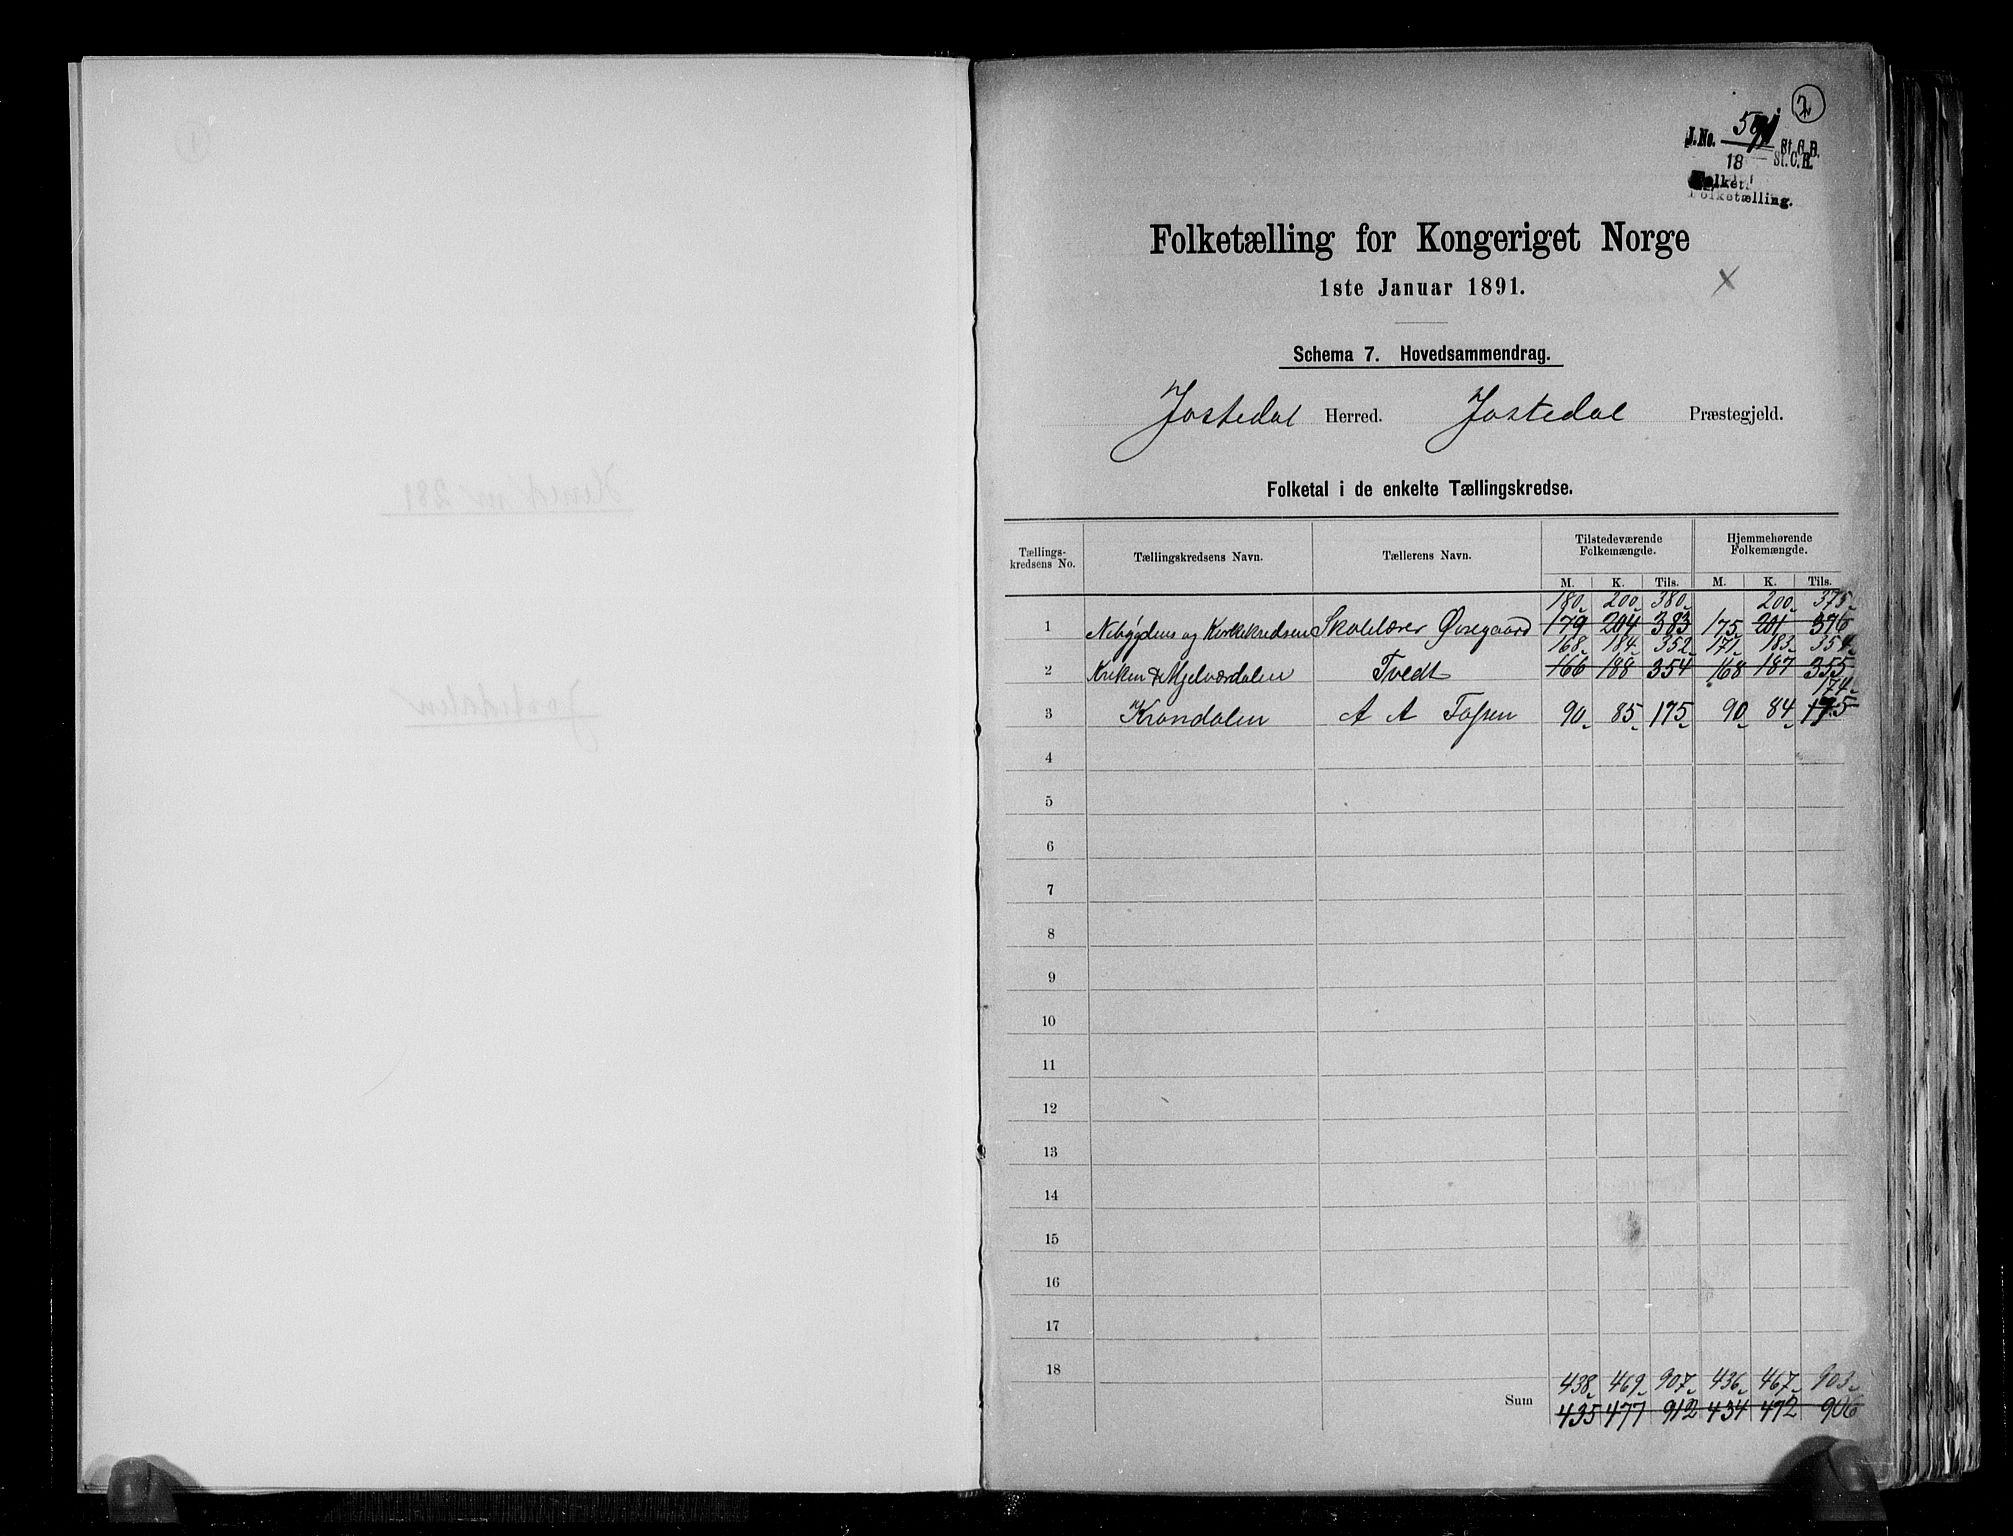 2
J.No. St.C.B.
18 St.C.B.
Folketælling.
Folketælling for Kongeriget Norge
1ste Januar 1891.
Schema 7. Hovedsammendrag.
Jostedal Herred. Jostedal Præstegjeld.
Folketal i de enkelte Tællingskredse.
Tællings-kredsens No. Tællingskredsens Navn. Tællerens Navn. Tilstedeværende Folkemængde. Hjemmehørende Folkemængde.
M. K. Tils. M. K. Tils.
180 200 380 200 375
1 Nebygdens og Kirkekredsen Skolelærer Øvregaard 179 204 383 175 201 376
168 184 352 171 183 354
2 Kriken & Mjelværdalen Tvedt 166 188 354 168 187 355
174
3 Krondalen A A Fossen 90 85 175 90 84 175
4
5
6
7
8
9
10
11
12
13
14
15
16
17
18
438 469 907 436 467 903
Sum 435 477 912 434 472 906